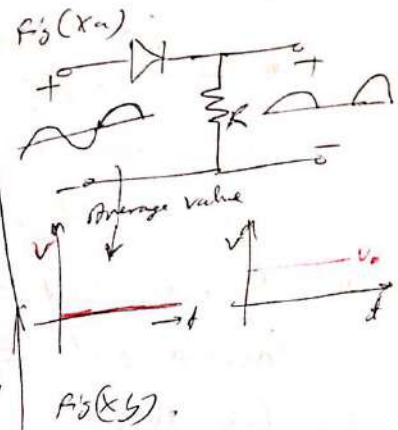 Fig (Xa)
+ +
R
-
-
Average value
V V V₀
→ t t
Fig (Xb).